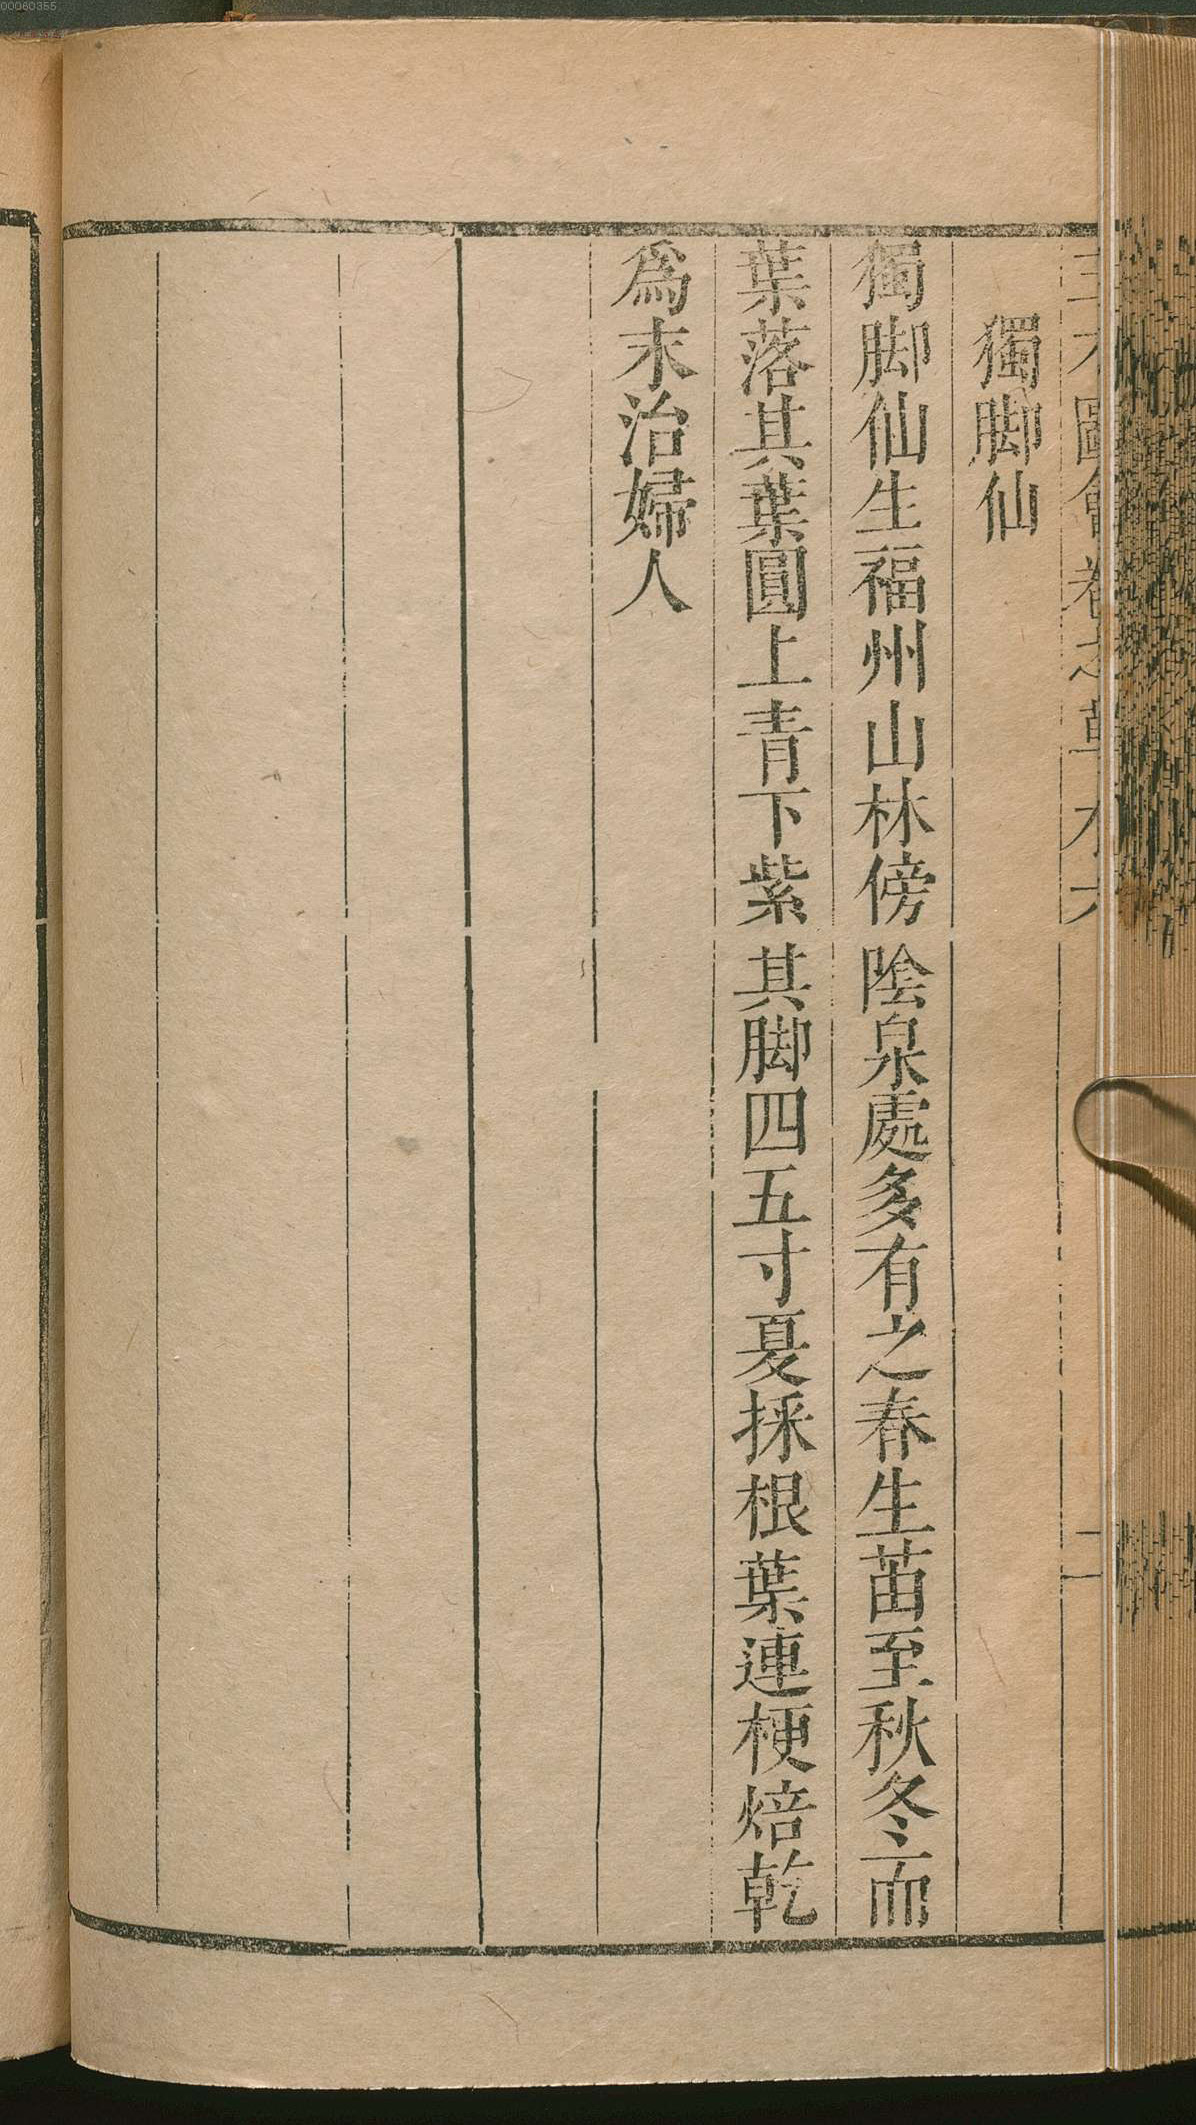 00060355
獨脚仙
獨脚仙生福州山林傍陰泉處多有之春生苗至秋冬而
葉落其葉圓上青下紫其脚四五寸夏採根葉連梗焙乾
爲末治婦人